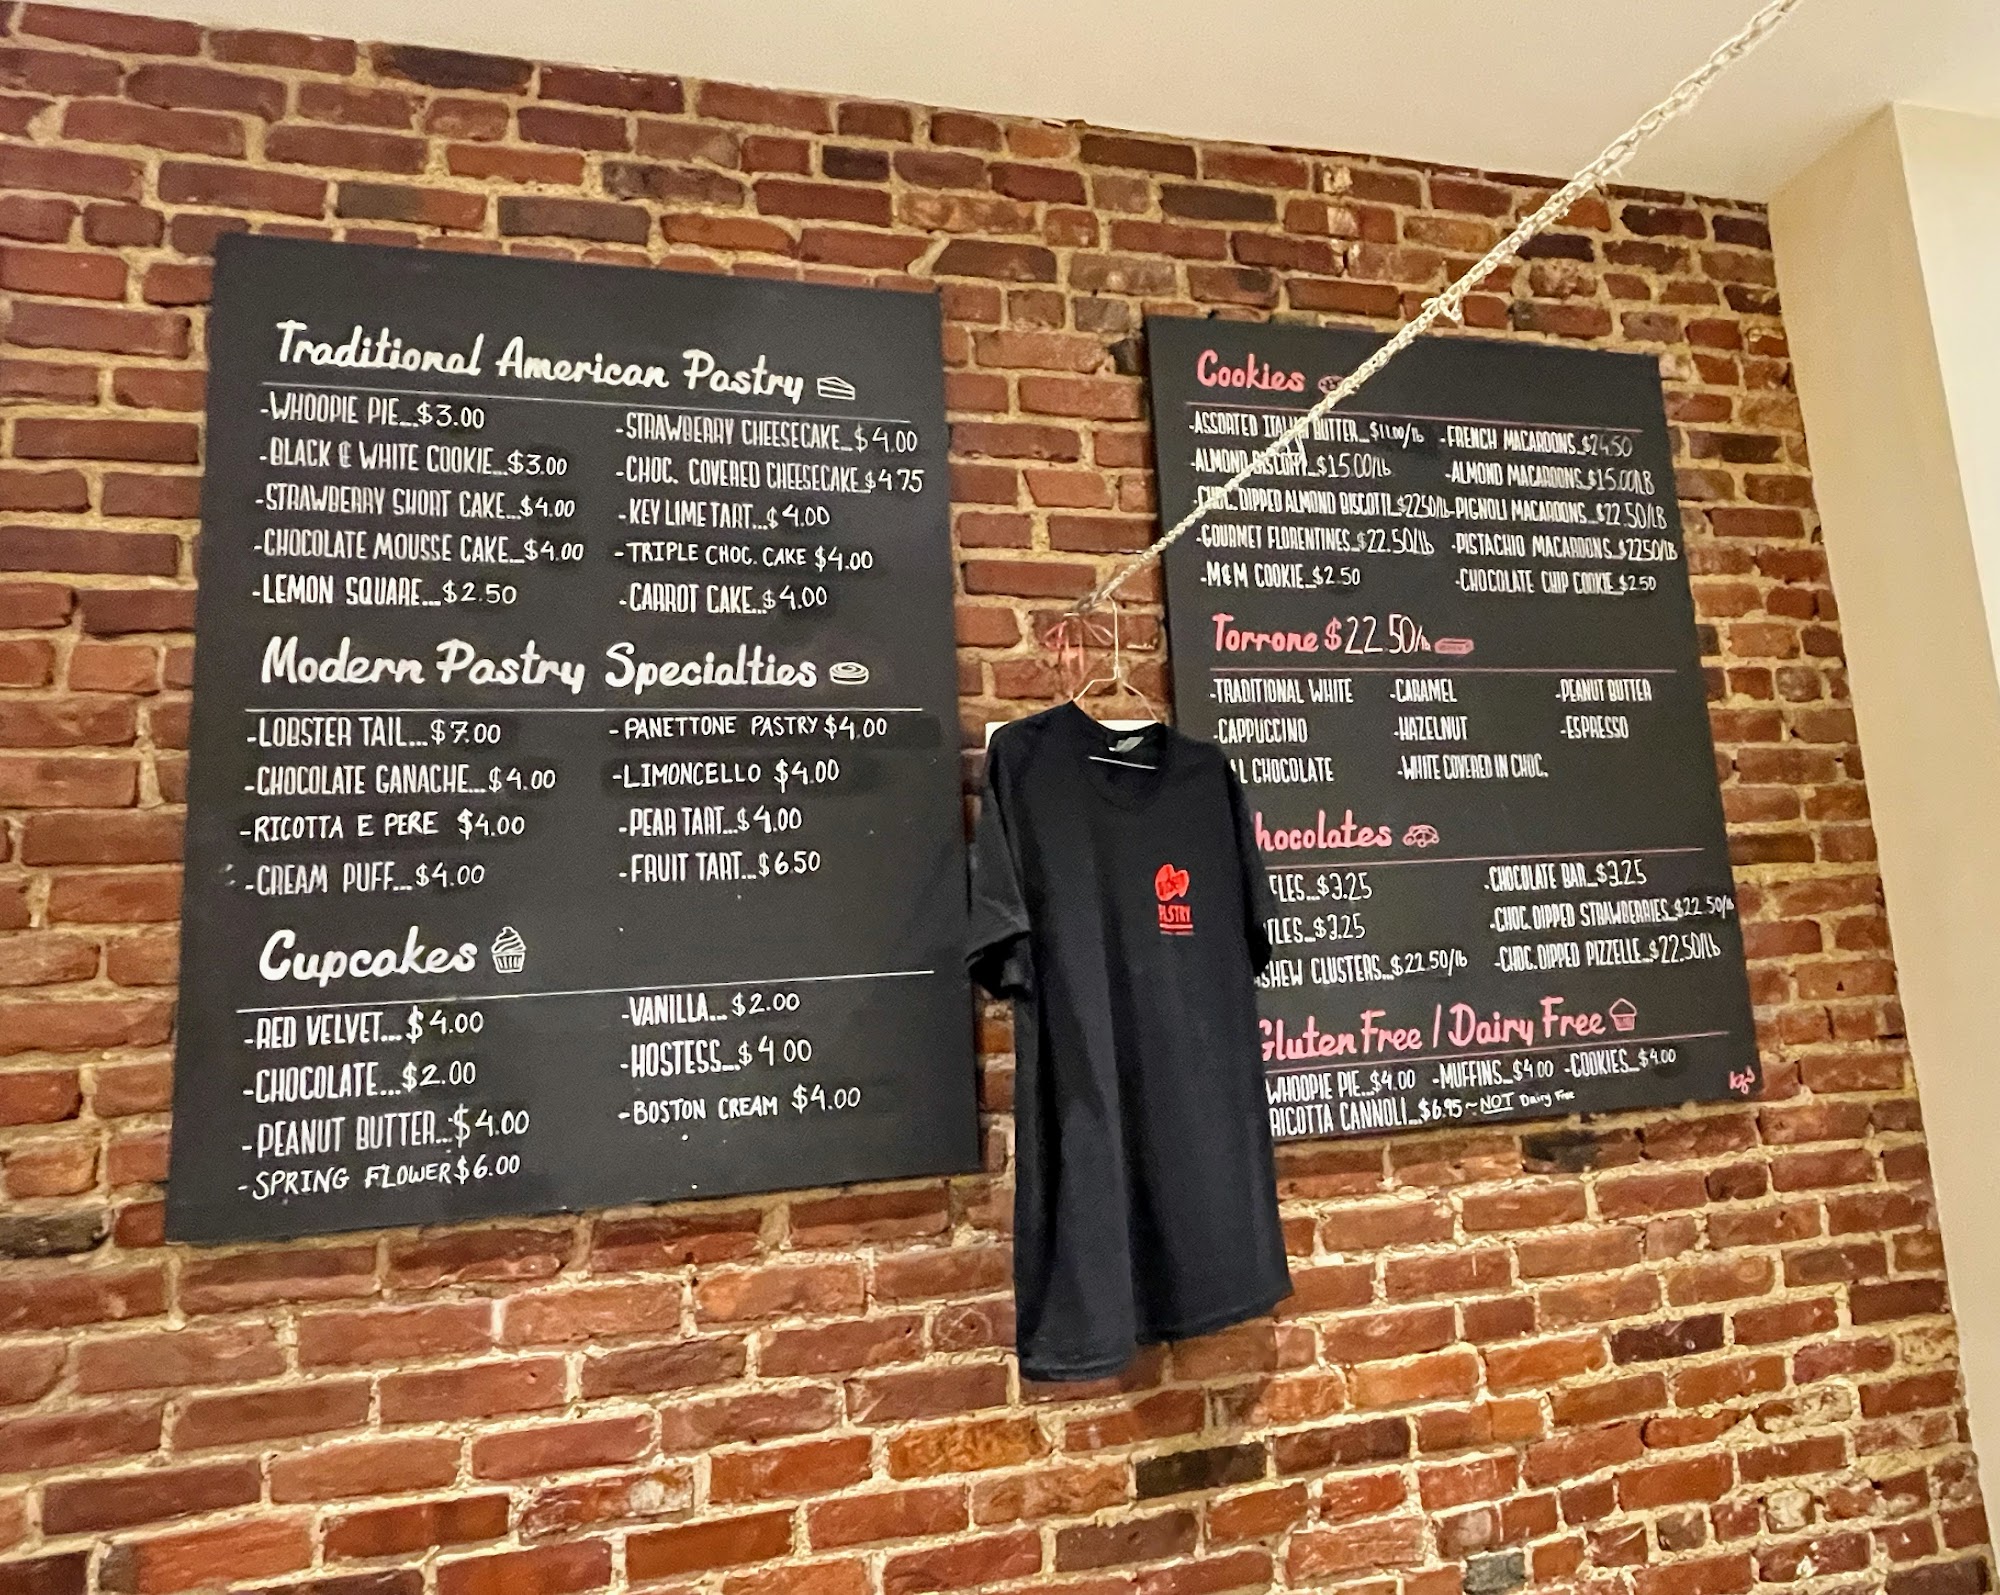 Traditional American Pastry
-WHOOPIE PIE...$3.00
-BLACK & WHITE COOKIE...$3.00
-STRAWBERRY SHORT CAKE...$4.00
-CHOCOLATE MOUSSE CAKE...$4.00
-LEMON SQUARE...$2.50
-STRAWBERRY CHEESECAKE...$4.00
-CHOC. COVERED CHEESECAKE...$4.75
-KEY LIME TART...$4.00
-TRIPLE CHOC. CAKE $4.00
-CARROT CAKE...$4.00
Modern Pastry Specialties
-LOBSTER TAIL...$7.00
-CHOCOLATE GANACHE...$4.00
-RICOTTA E PERE $4.00
-CREAM PUFF...$4.00
-PANETTONE PASTRY $4.00
-LIMONCELLO $4.00
-PEAR TART...$4.00
-FRUIT TART...$6.50
Cupcakes
-RED VELVET...$4.00
-CHOCOLATE...$2.00
-PEANUT BUTTER...$4.00
-SPRING FLOWER $6.00
-VANILLA...$2.00
-HOSTESS...$4.00
-BOSTON CREAM $4.00
PASTRY
Cookies
-ASSORTED ITALIAN BUTTER...$11.00/lb
-ALMOND BISCOTTI...$15.00/lb
-CHOC. DIPPED ALMOND BISCOTTI...$22.50/lb
-GOURMET FLORENTINES...$22.50/lb
-M&M COOKIE...$2.50
-FRENCH MACAROONS...$24.50
-ALMOND MACAROONS...$15.00/LB
-PIGNOLI MACAROONS...$22.50/LB
-PISTACHIO MACAROONS...$22.50/lb
-CHOCOLATE CHIP COOKIE...$2.50
Torrone $22.50/lb
-TRADITIONAL WHITE
-CARAMEL
-PEANUT BUTTER
-CAPPUCCINO
-HAZELNUT
-ESPRESSO
AL CHOCOLATE
-WHITE COVERED IN CHOC.
hocolates
FLES...$3.25
TLES...$3.25
SHEW CLUSTERS...$22.50/lb
-CHOCOLATE BAR...$3.25
-CHOC. DIPPED STRAWBERRIES...$22.50/lb
-CHOC. DIPPED PIZZELLE...$22.50/lb
Gluten Free / Dairy Free
WHOOPIE PIE...$4.00 -MUFFINS...$4.00 -COOKIES...$4.00
RICOTTA CANNOLI...$6.95 ~ NOT Dairy Free